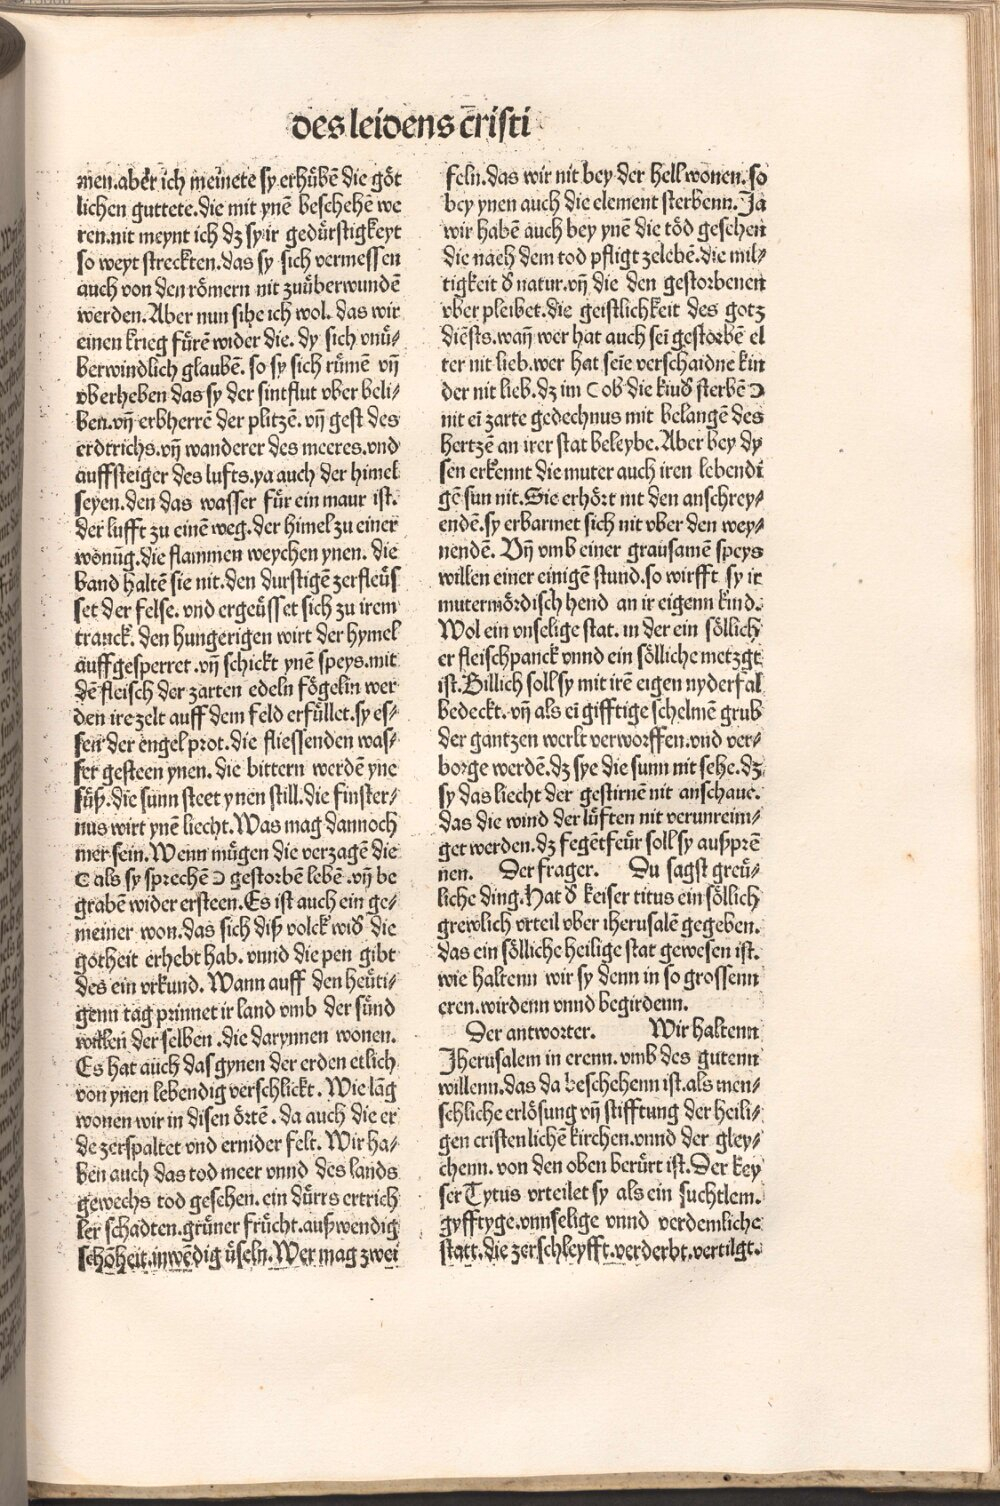 des leidens cr̄isti
men.aber ich meinete sy erhůbẽ die gôt
lichen guttete.die mit ynẽ beschehẽ we
ren.nit meynt ich dz sy ir gedürstigkeyt
so weyt streckten.das sy sich vermessen
auch von den rômern nit zuüberwundẽ
werden.Aber nun sihe ich wol.das wir
einen krieg fürẽ wider die.dy sich vnü⸗
berwindlich glaubẽ.so sy sich rümẽ vñ
vberheben das sy der sintflut vber beli⸗
ben.vñ erbherrẽ der plitzẽ.vñ gest des
erdtrichs.vñ wanderer des meeres.vnd
auffsteiger des lufts.ya auch der himel
seyen.den das wasser für ein maur ist.
der lufft zu einẽ weg.der himel zu einer
wônũg.die flammen weychen ynen. die
band haltẽ sie nit.den durstigẽ zerfleüs
set der felse. vnd ergeüsset sich zu irem
tranck. den hungerigen wirt der hymel
auffgesperret.vñ schickt ynẽ speys.mit
dẽ fleisch der zarten edeln fôgelin wer
den ire zelt auff dem feld erfüllet.sy es⸗
sen der engel prot.die fliessenden was⸗
ser gesteen ynen. die bittern werdẽ yne
süß.die sunn steet ynen still.die finster⸗
nus wirt ynẽ liecht.Was mag dannoch
mer sein.Wenn mügen die verzagẽ die
(als sy sprechẽ) gestorbẽ lebẽ.vñ be
grabẽ wider ersteen.Es ist auch ein ge⸗
meiner won.das sich diß volck wid̕ die
gotheit erhebt hab. vnnd die pen gibt
des ein vrkund. Wann auff den heüti⸗
genn tag prinnet ir land vmb der sünd
willen der selben .die darynnen wonen.
Es hat auch das gynen der erden etlich
von ynen lebendig verschlickt. Wie lãg
wonen wir in disen ôrtẽ. da auch die er
de zerspaltet vnd ernider felt. Wir ha⸗
ben auch das tod meer vnnd des lands
gewechs tod gesehen. ein dürrs ertrich
ler schadten.grüner frücht.außwendig
schônheit.inwẽdig üseln.Wer mag zwei
feln.das wir nit bey der hell wonen.so
bey ynen auch die element sterbenn.Ja
wir habẽ auch bey ynẽ die tôd gesehen
die nach dem tod pfligt zelebẽ.die mil⸗
tigkeit d̕ natur.vñ die den gestorbenen
vber pleibet.die geistlichkeit des gotz
diẽsts.wañ wer hat auch sei gestorbẽ el
ter nit lieb.wer hat seĩe verschaidne kin
der nit lieb.dz im (ob die kiud̕ sterbẽ)
nit eĩ zarte gedechnus mit belangẽ des
hertzẽ an irer stat beleybe.Aber bey dy
sen erkennt die muter auch iren lebendi
gẽ sun nit.Sie erhôrt nit den anschrey⸗
endẽ.sy erbarmet sich nit vber den wey⸗
nendẽ. Vñ vmb einer grausamẽ speys
willen einer einigẽ stund.so wirfft sy ir
mutermôrdisch hend an ir eigenn kind.
Wol ein vnselige stat. in der ein sôllich
er fleischpanck vnnd ein sôlliche metzgt
ist.Billich soll sy mit irẽ eigen nyderfal
bedeckt.vñ als eĩ gifftige schelmẽ grub
der gantzen werlt verworffen.vnd ver⸗
borge werdẽ.dz sye die sunn nit sehe.dz
sy das liecht der gestirnẽ nit anschaue.
das die wind der lüften nit verunreim⸗
get werden.dz fegẽtfeür soll sy außprẽ
nen. Der frager. Du sagst greü⸗
liche ding.Hat d̕ keiser titus ein sôllich
grewlich vrteil vber iherusalẽ gegeben.
das ein sôlliche heilige stat gewesen ist.
wie haltenn wir sy denn in so grossenn
eren.wirdenn vnnd begirdenn.
Der antworter. Wir haltenn
Jherusalem in erenn.vmb des gutenn
willenn.das da beschehenn ist.als men⸗
schliche erlôsung vñ stifftung der heili⸗
gen cristenlichẽ kirchen.vnnd der gley⸗
chenn. von den oben berürt ist.Der key
ser Tytus vrteilet sy als ein suchtlem.
gyfftyge.vnnselige vnnd verdemliche
statt.die zerschleyfft.verderbt.vertilgt.